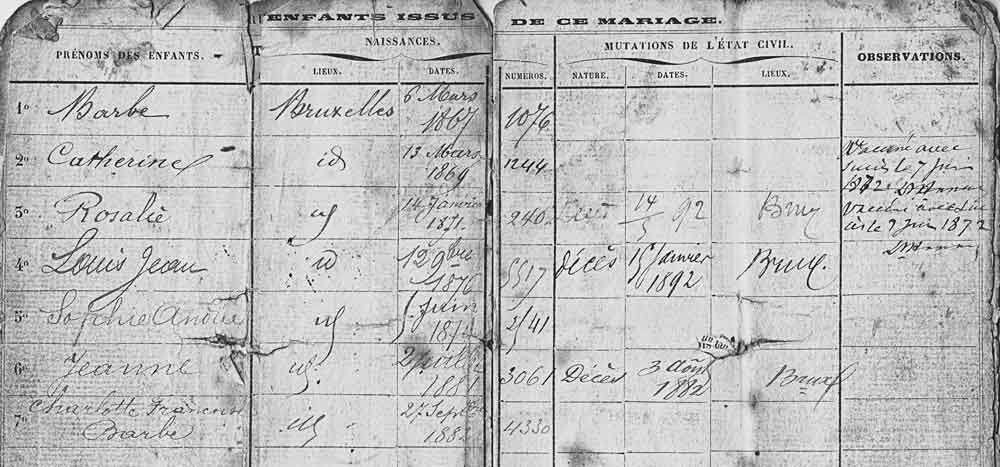 ENFANTS ISSUS DE CE MARIAGE.
PRÉNOMS DES ENFANTS.
NAISSANCES.
LIEUX.
DATES.
NUMEROS.
MUTATIONS DE L'ÉTAT CIVIL.
NATURE.
DATES.
LIEUX.
OBSERVATIONS.
1° Barbe Bruxelles 6 Mars 1867 1076
2° Catherine id 13 Mars 1869 1244 Vacciné avec succès le 7 Juin 1872
3° Rosalie id 14 Janvier 1871 240 Décès 14/5 92 Brux Vacciné avec succès le 7 Juin 1872
4° Louis Jean id 12 9bre 1876 5517 décès 15 Janvier 1892 Brux.
5° Sophie id Juin 2541
6° Jeanne id 1881 3061 Décès 3 Août 1882 Brux
7° Charlotte Francoise Barbe id 27 Septbre 4330